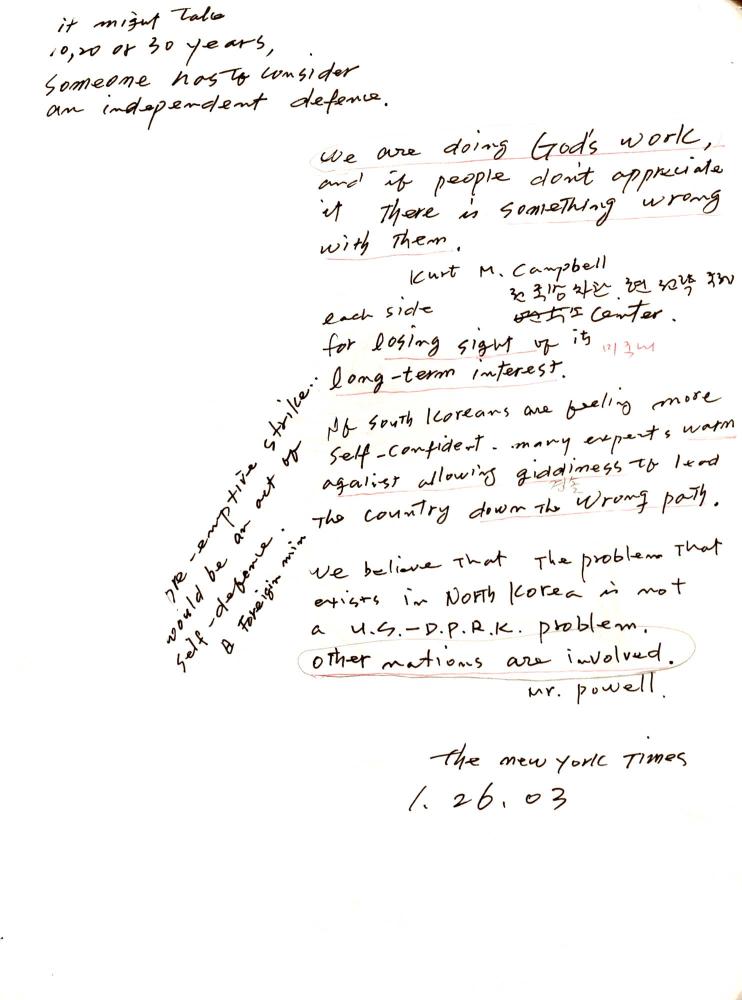 it might take
10,20 or 30 years,
someone has to consider
an independent defence.
we are doing God's work,
and if people don't appreciate
it there is something wrong
with them.
Kurt M. Campbell
each side
center.
for losing sight of its
미국내
long-term interest.
If South Koreans are feeling more
self-confident. many experts warm
against allowing giddiness to lead
경솔
the country down the wrong path.
pre-emptive strike..
would be an act of
self-defence.
a Foreigin min
we believe that the problem that
exists in North Korea is not
a U.S.-D.P.R.K. problem.
other nations are involved.
Mr. powell.
the new york Times
1. 26. 03